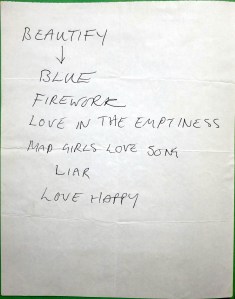 BEAUTIFY
↓
BLUE
FIREWORK
LOVE IN THE EMPTINESS
MAD GIRLS LOVE SONG
LIAR
LOVE HAPPY